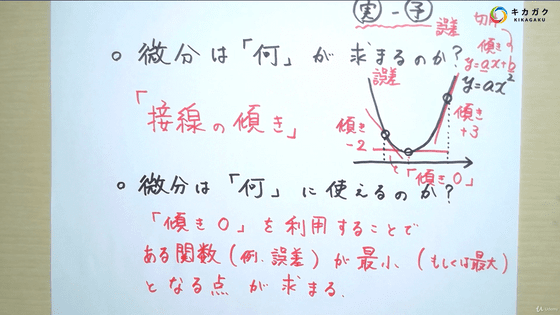 キカガク
KIKAGAKU
実 - 予
誤差
切片
傾き
y=ax+b
微分は「何」が求まるのか?
誤差
y=ax²
「接線の傾き」
傾き
-2
傾き
+3
「傾き0」
微分は「何」に使えるのか?
「傾き0」を利用することで
ある関数(例.誤差)が最小、(もしくは最大)
となる点が求まる.